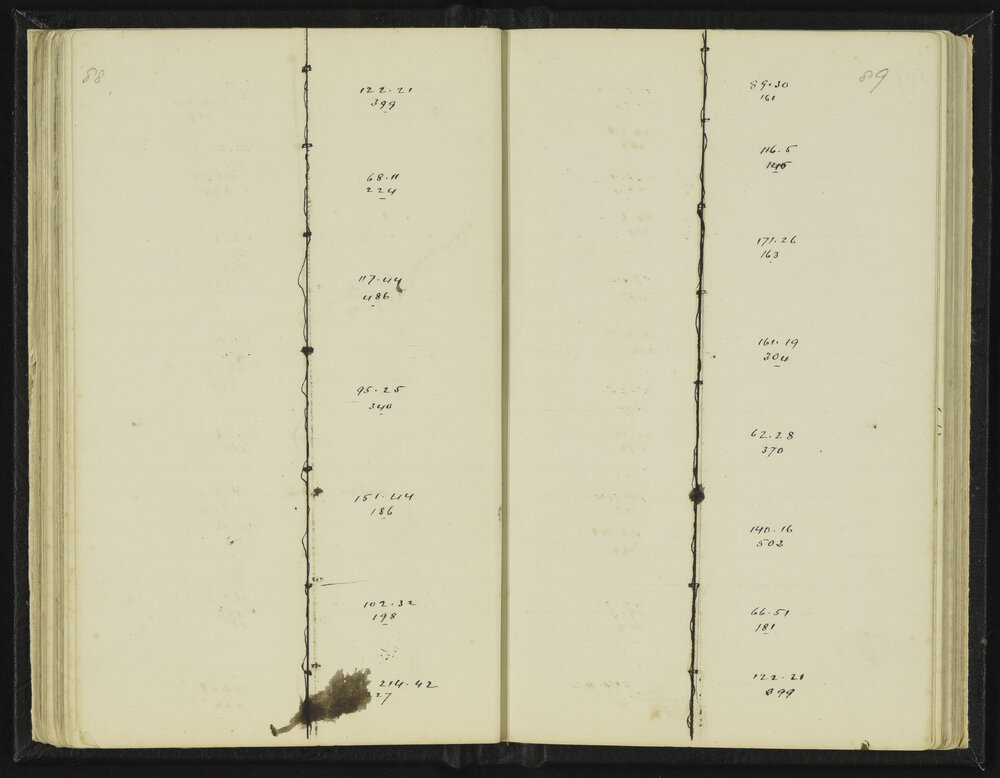 88
122.21
399
68.11
224
117.44
486
95.25
340
151.44
186
102.32
198
214.42
27
89
89.30
161
116.5
145
171.26
163
161.19
304
62.28
370
140.16
502
66.51
181
122.21
399